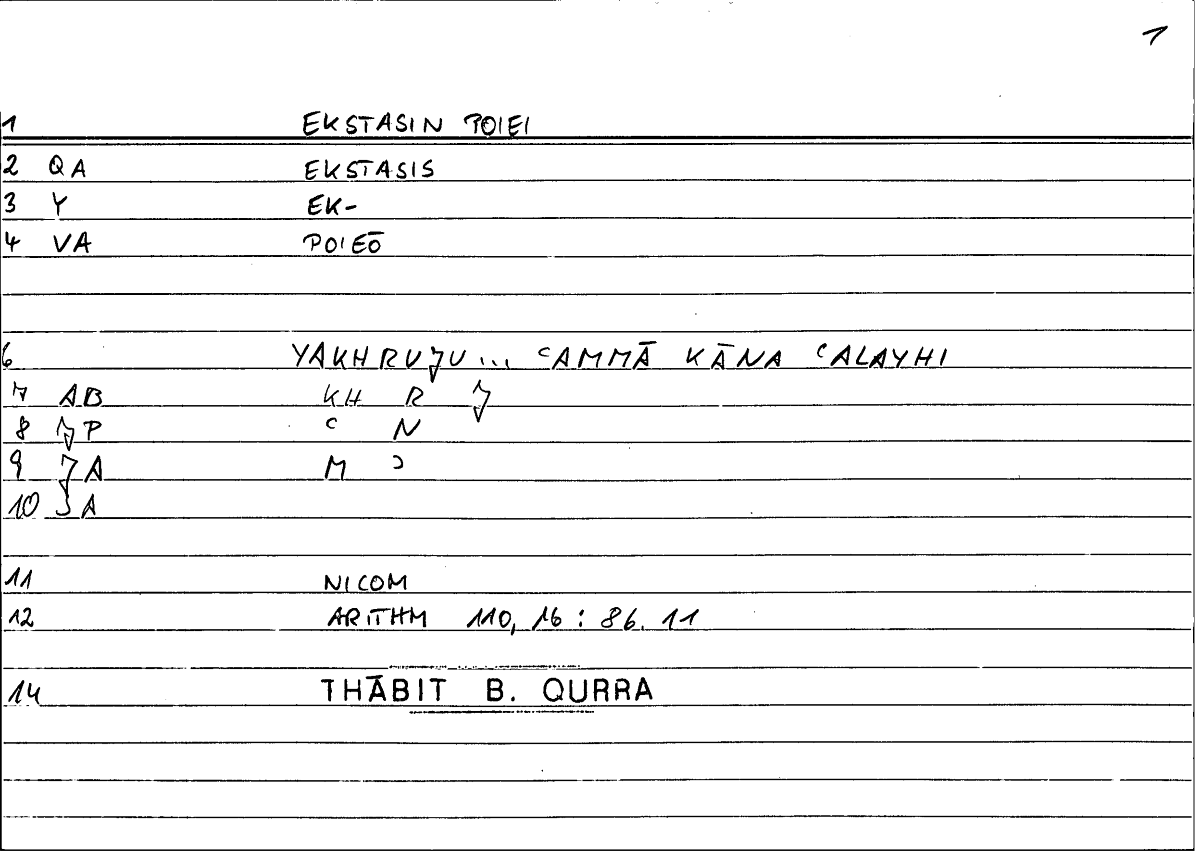 1
1 EKSTASIN POIEI
2 QA EKSTASIS
3 Y EK-
4 VA POIEŌ
6 YAKHRUǦU... ʿAMMĀ KĀNA ʿALAYHI
7 AB KH R Ǧ
8 ǦP ʿ N
9 ǦA M ʾ
10 JA
11 NICOM
12 ARITHM 110, 16 : 86. 11
14 THĀBIT B. QURRA